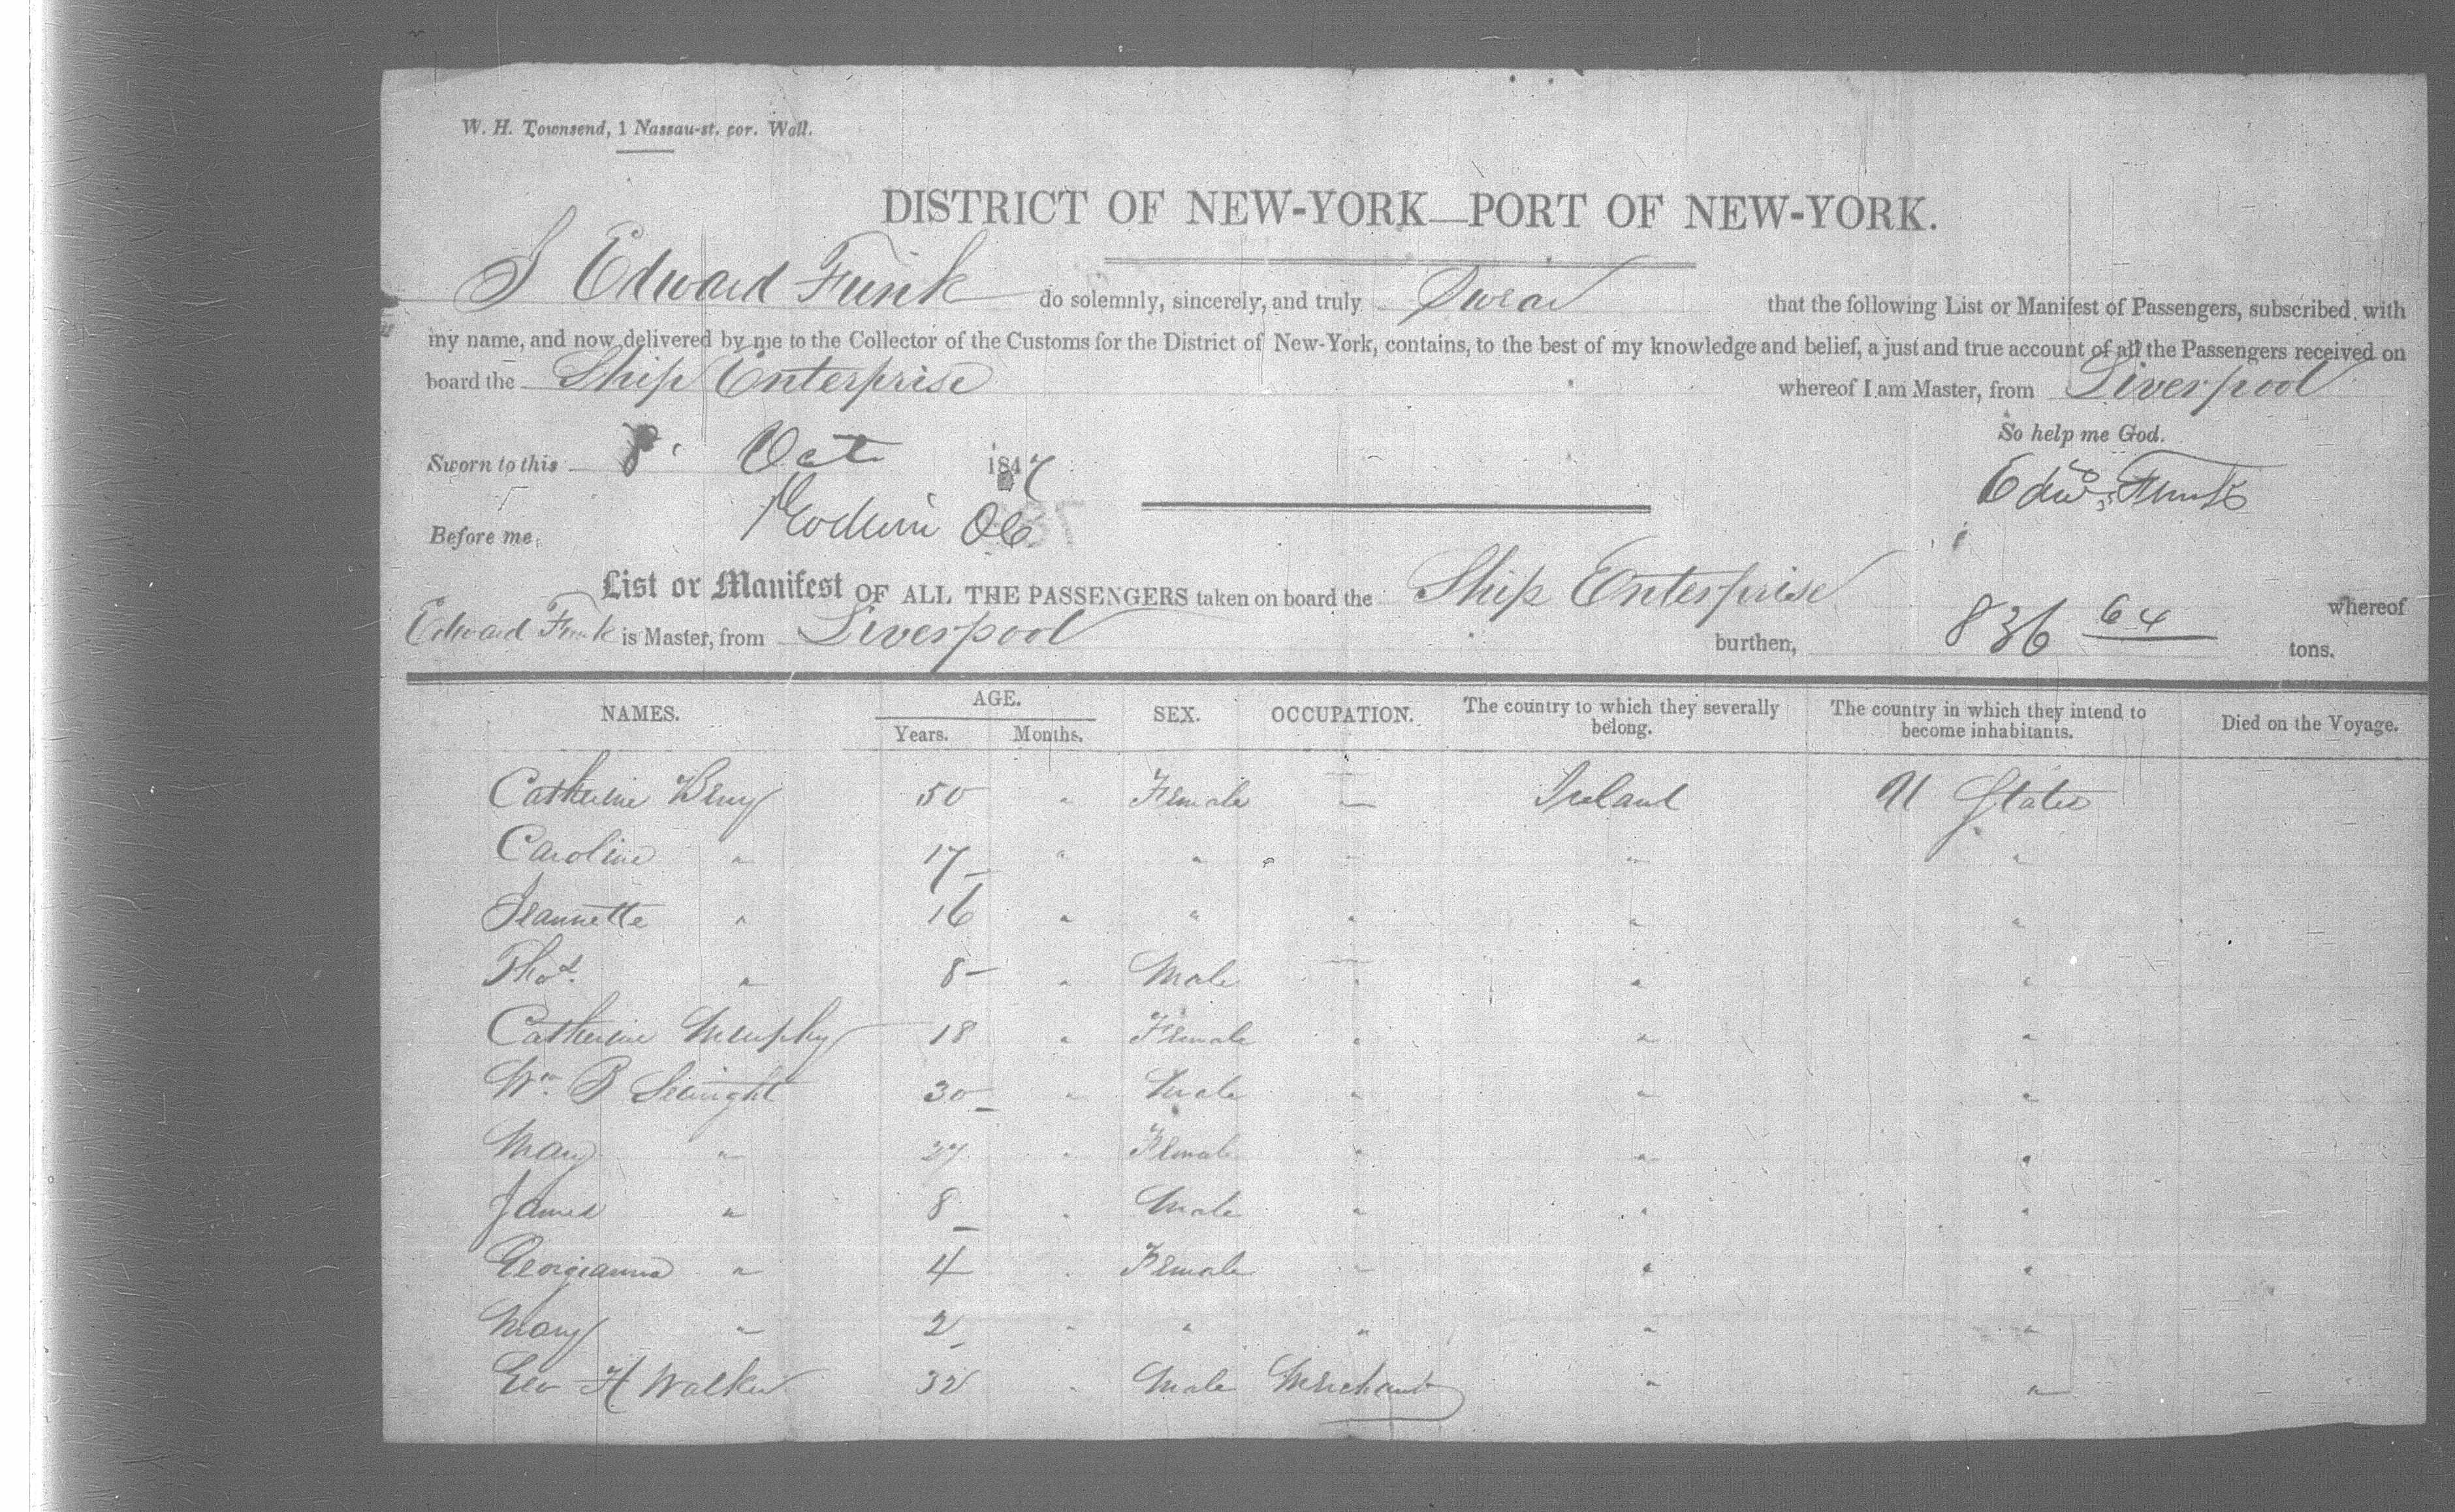 W. H. Townsend, 1 Nassau-st. cor. Wall.
DISTRICT OF NEW-YORK—PORT OF NEW-YORK.
I Edward Funk do solemnly, sincerely, and truly Swear that the following List or Manifest of Passengers, subscribed with
my name, and now delivered by me to the Collector of the Customs for the District of New-York, contains, to the best of my knowledge and belief, a just and true account of all the Passengers received on
board the Ship Enterprise whereof I am Master, from Liverpool
So help me God.
Sworn to this 8 Oct 1847
Edwd Funk
Before me,
List or Manifest OF ALL THE PASSENGERS taken on board the Ship Enterprise whereof
Edward Funk is Master, from Liverpool burthen, 836 64 tons.
NAMES. AGE. SEX. OCCUPATION. The country to which they severally belong. The country in which they intend to become inhabitants. Died on the Voyage.
Years. Months.
Catherine 50 " Female — Ireland U States
Caroline " 17 " " " " "
Jeannette " 16 " " " " "
Thos. " 8 " Male " " "
Catherine Murphy 18 " Female " " "
Wm B 30 " Male " " "
Mary " 27 " Female " " "
James " 8 " Male " " "
Georgianna " 4 " Female " " "
Mary " 2 " " " " "
Geo H Walker 32 " Male Merchant " "